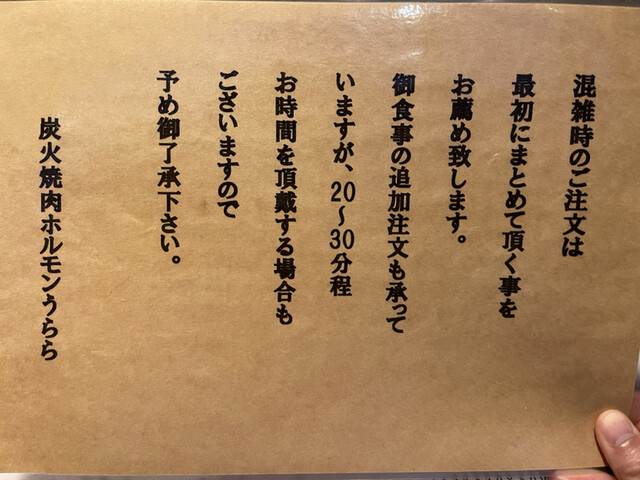 混雑時のご注文は
最初にまとめて頂く事を
お薦め致します。
御食事の追加注文も承って
いますが、20～30分程
お時間を頂戴する場合も
ございますので
予め御了承下さい。
炭火焼肉ホルモンうらら